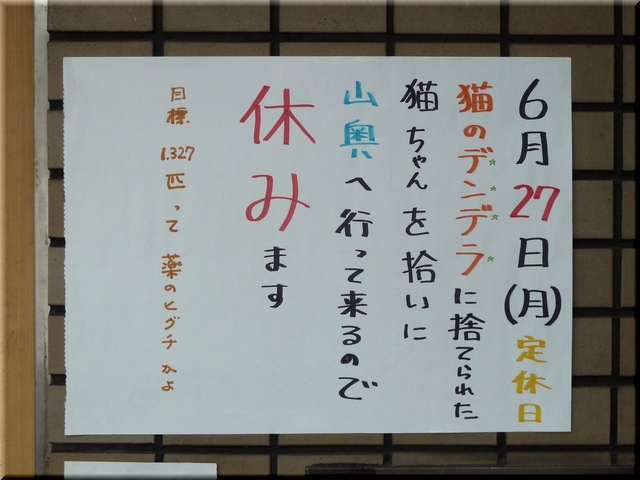 6月27日(月)定休日
猫のデンデラに捨てられた
猫ちゃんを拾いに
山奥へ行って来るので
休みます
目標1.327匹って 薬のヒグチかよ